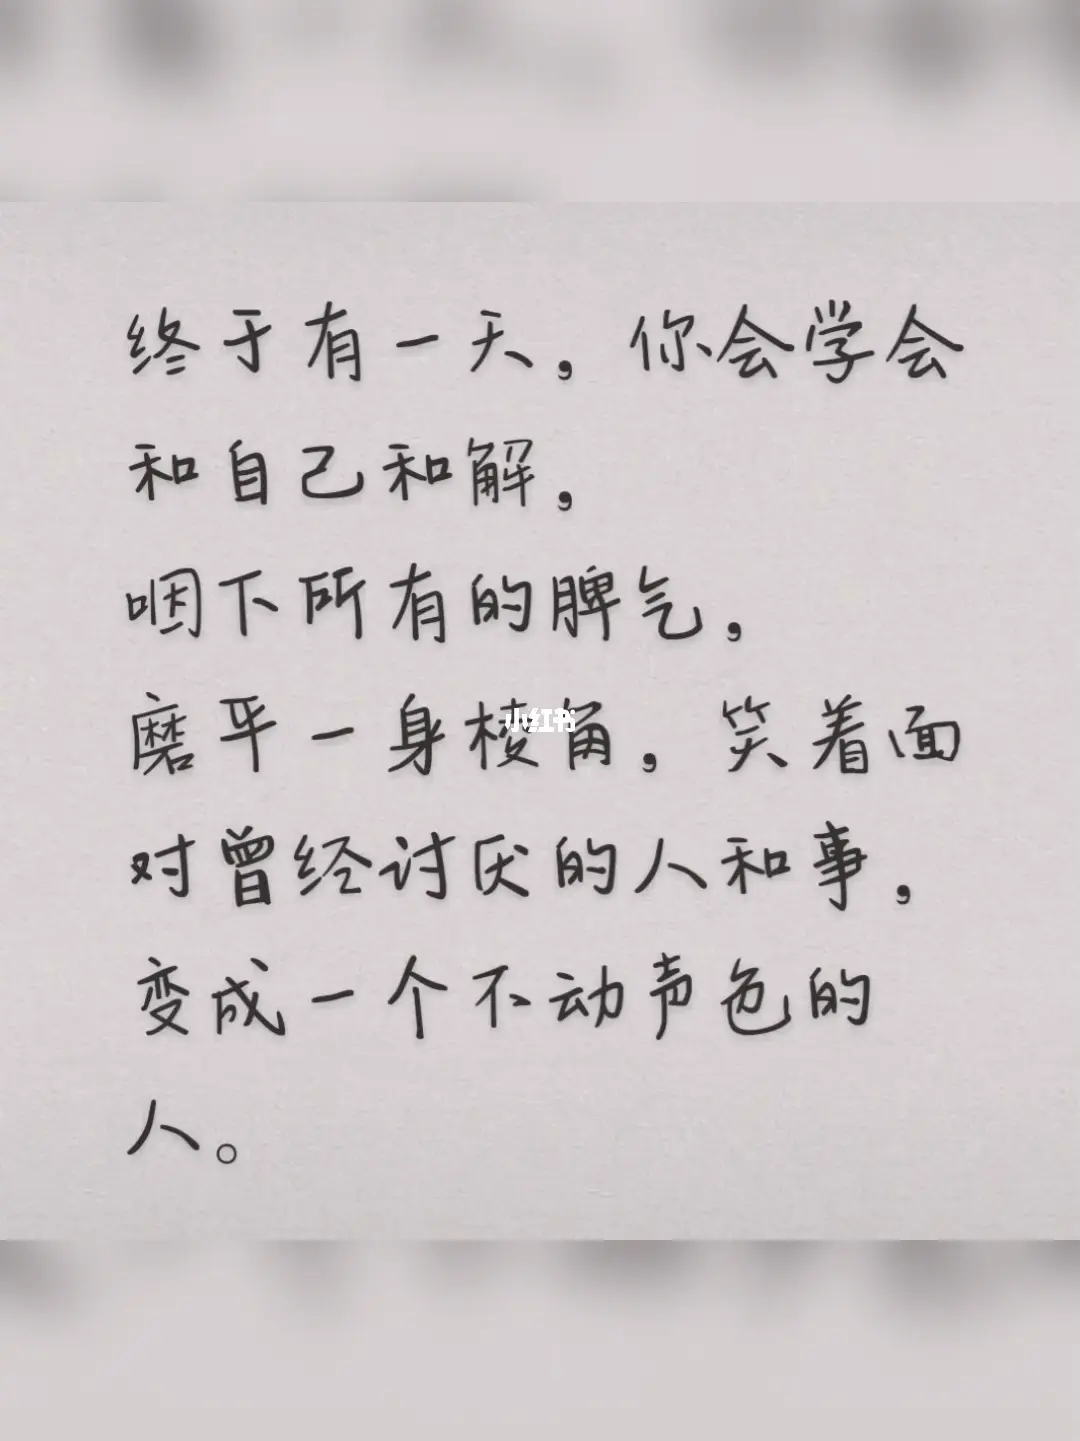 终于有一天，你会学会
和自己和解，
咽下所有的脾气，
磨平一身棱角，笑着面
对曾经讨厌的人和事，
变成一个不动声色的
人。
小红书